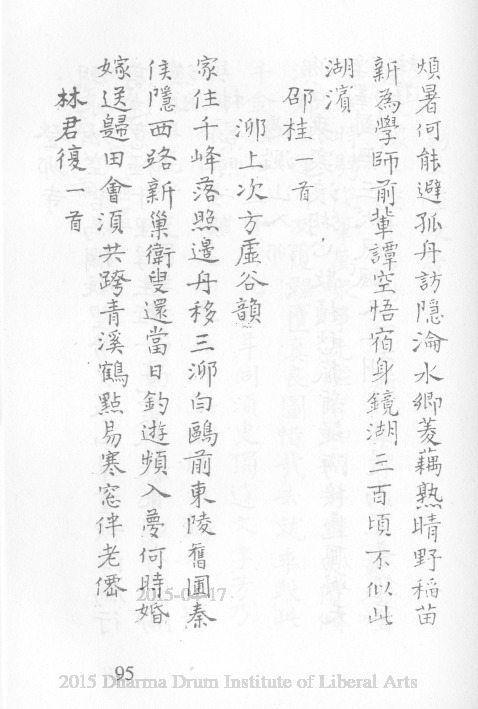 煩暑何能避孤舟訪隱淪水鄉菱藕熟晴野稻苗
新為學師前輩譚空悟宿身鏡湖三百頃不似此
湖濱
邵桂一首
泖上次方虛谷韻
家住千峰落照邊丹移三泖白鷗前東陵舊圃秦
侯隱西路新巢衛叟還當日釣遊頻入夢何時婚
嫁送歸田會湏共跨青溪鶴點易寒窓伴老僊
林君復一首
2015-04-17
95
2015 Dharma Drum Institute of Liberal Arts